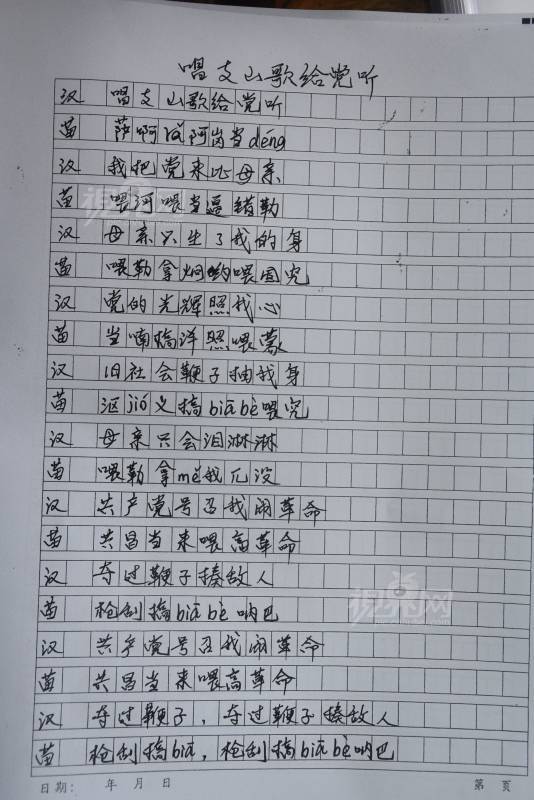 唱支山歌给党听
汉 唱支山歌给党听
苗 萨啊 阿岗当déng
汉 我把党来比母亲
苗 喂河喂当逼错勒
汉 母亲只生了我的身
苗 喂勒拿炯的喂固究
汉 党的光辉照我心
苗 当喃娇洋照喂蒙
汉 旧社会鞭子抽我身
苗 沤jió义搞biābè喂究
汉 母亲只会泪淋淋
苗 喂勒拿mě我兀没
汉 共产党号召我闹革命
苗 共昌当来喂高革命
汉 夺过鞭子揍敌人
苗 枪刮搞biābè呐巴
汉 共产党号召我闹革命
苗 共昌当来喂高革命
汉 夺过鞭子,夺过鞭子揍敌人
苗 枪刮搞biā,枪刮搞biābè呐巴
日期: 年 月 日 第 页
视界网